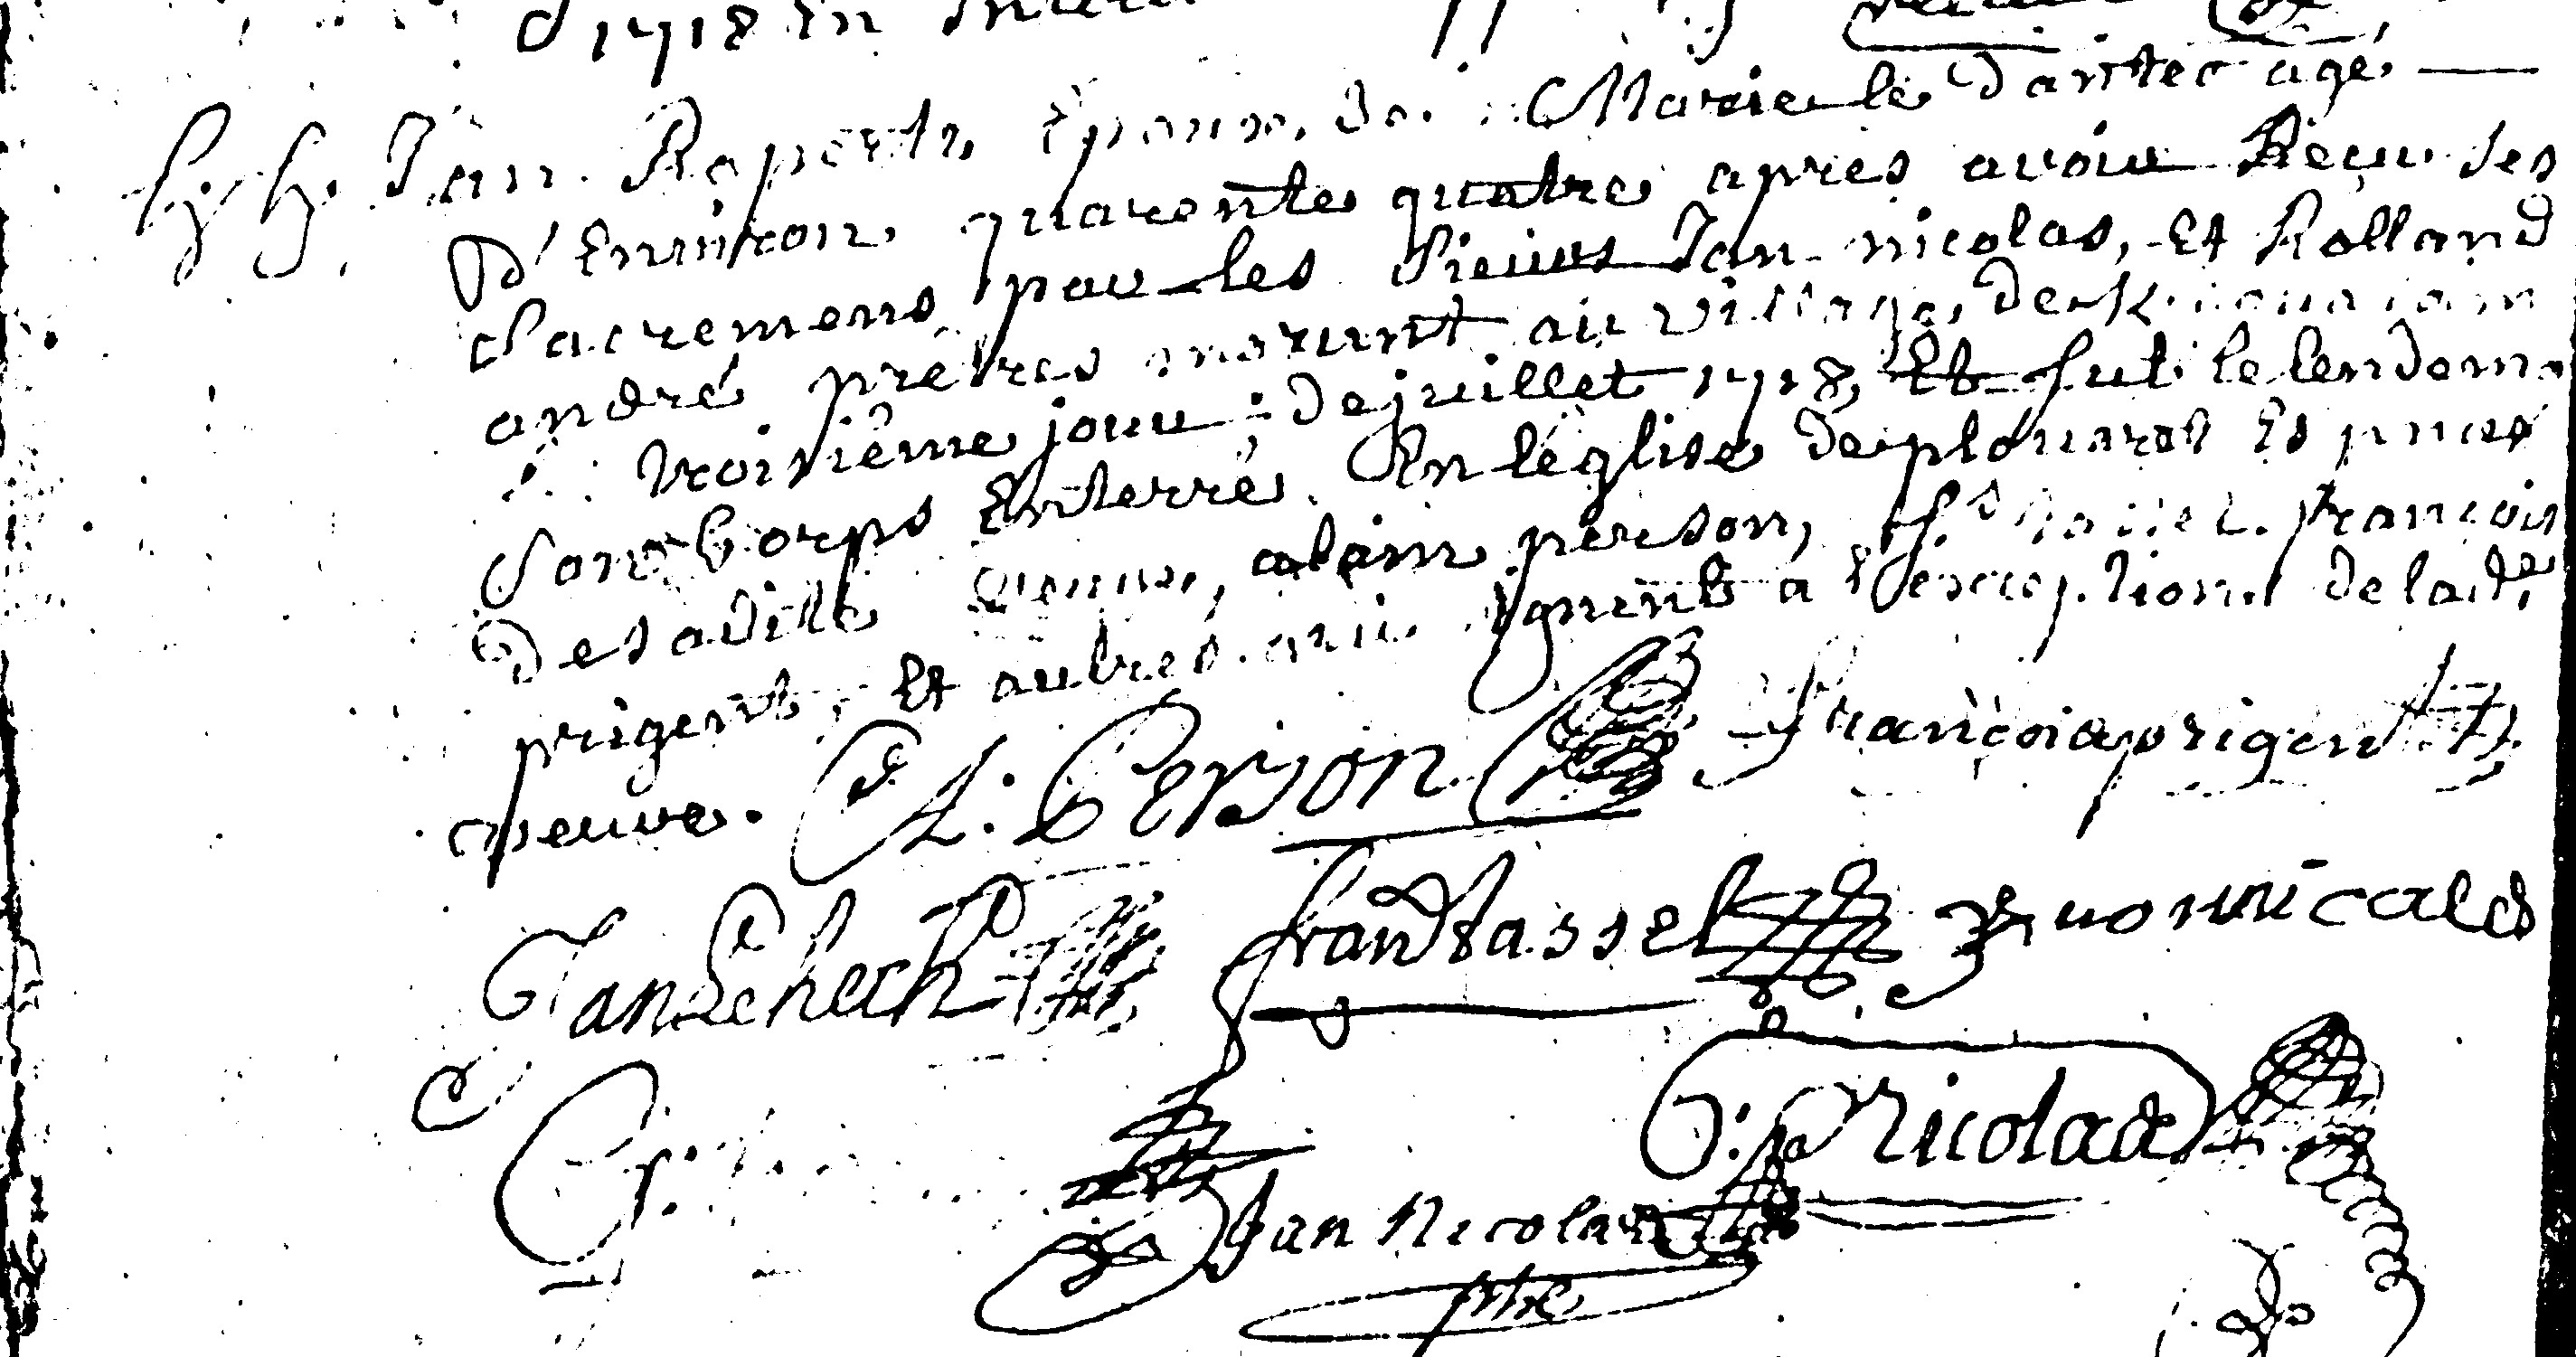 1718 En
h: h: Jan Raperh Epoux de Marie le dantec agé
D'Environ quarente quatre apres avoir Reçeu ses
Sacremens par les Sieurs Jan nicolas, Et Rolland
andré prêtres mourut au village de
troisième jour de juillet 1718 Et fut le lendem
son Corps Enterré En l'eglise de plouaret Es pnces
De sadite veuve, alain person, francois
prigent, Et autres qui signent a l'exception de lad.e
veuve. A: Person François prigent
Jan Lehech fran tassel yuon nicolas
J: Nicolas
Jan Nicolas
ptre